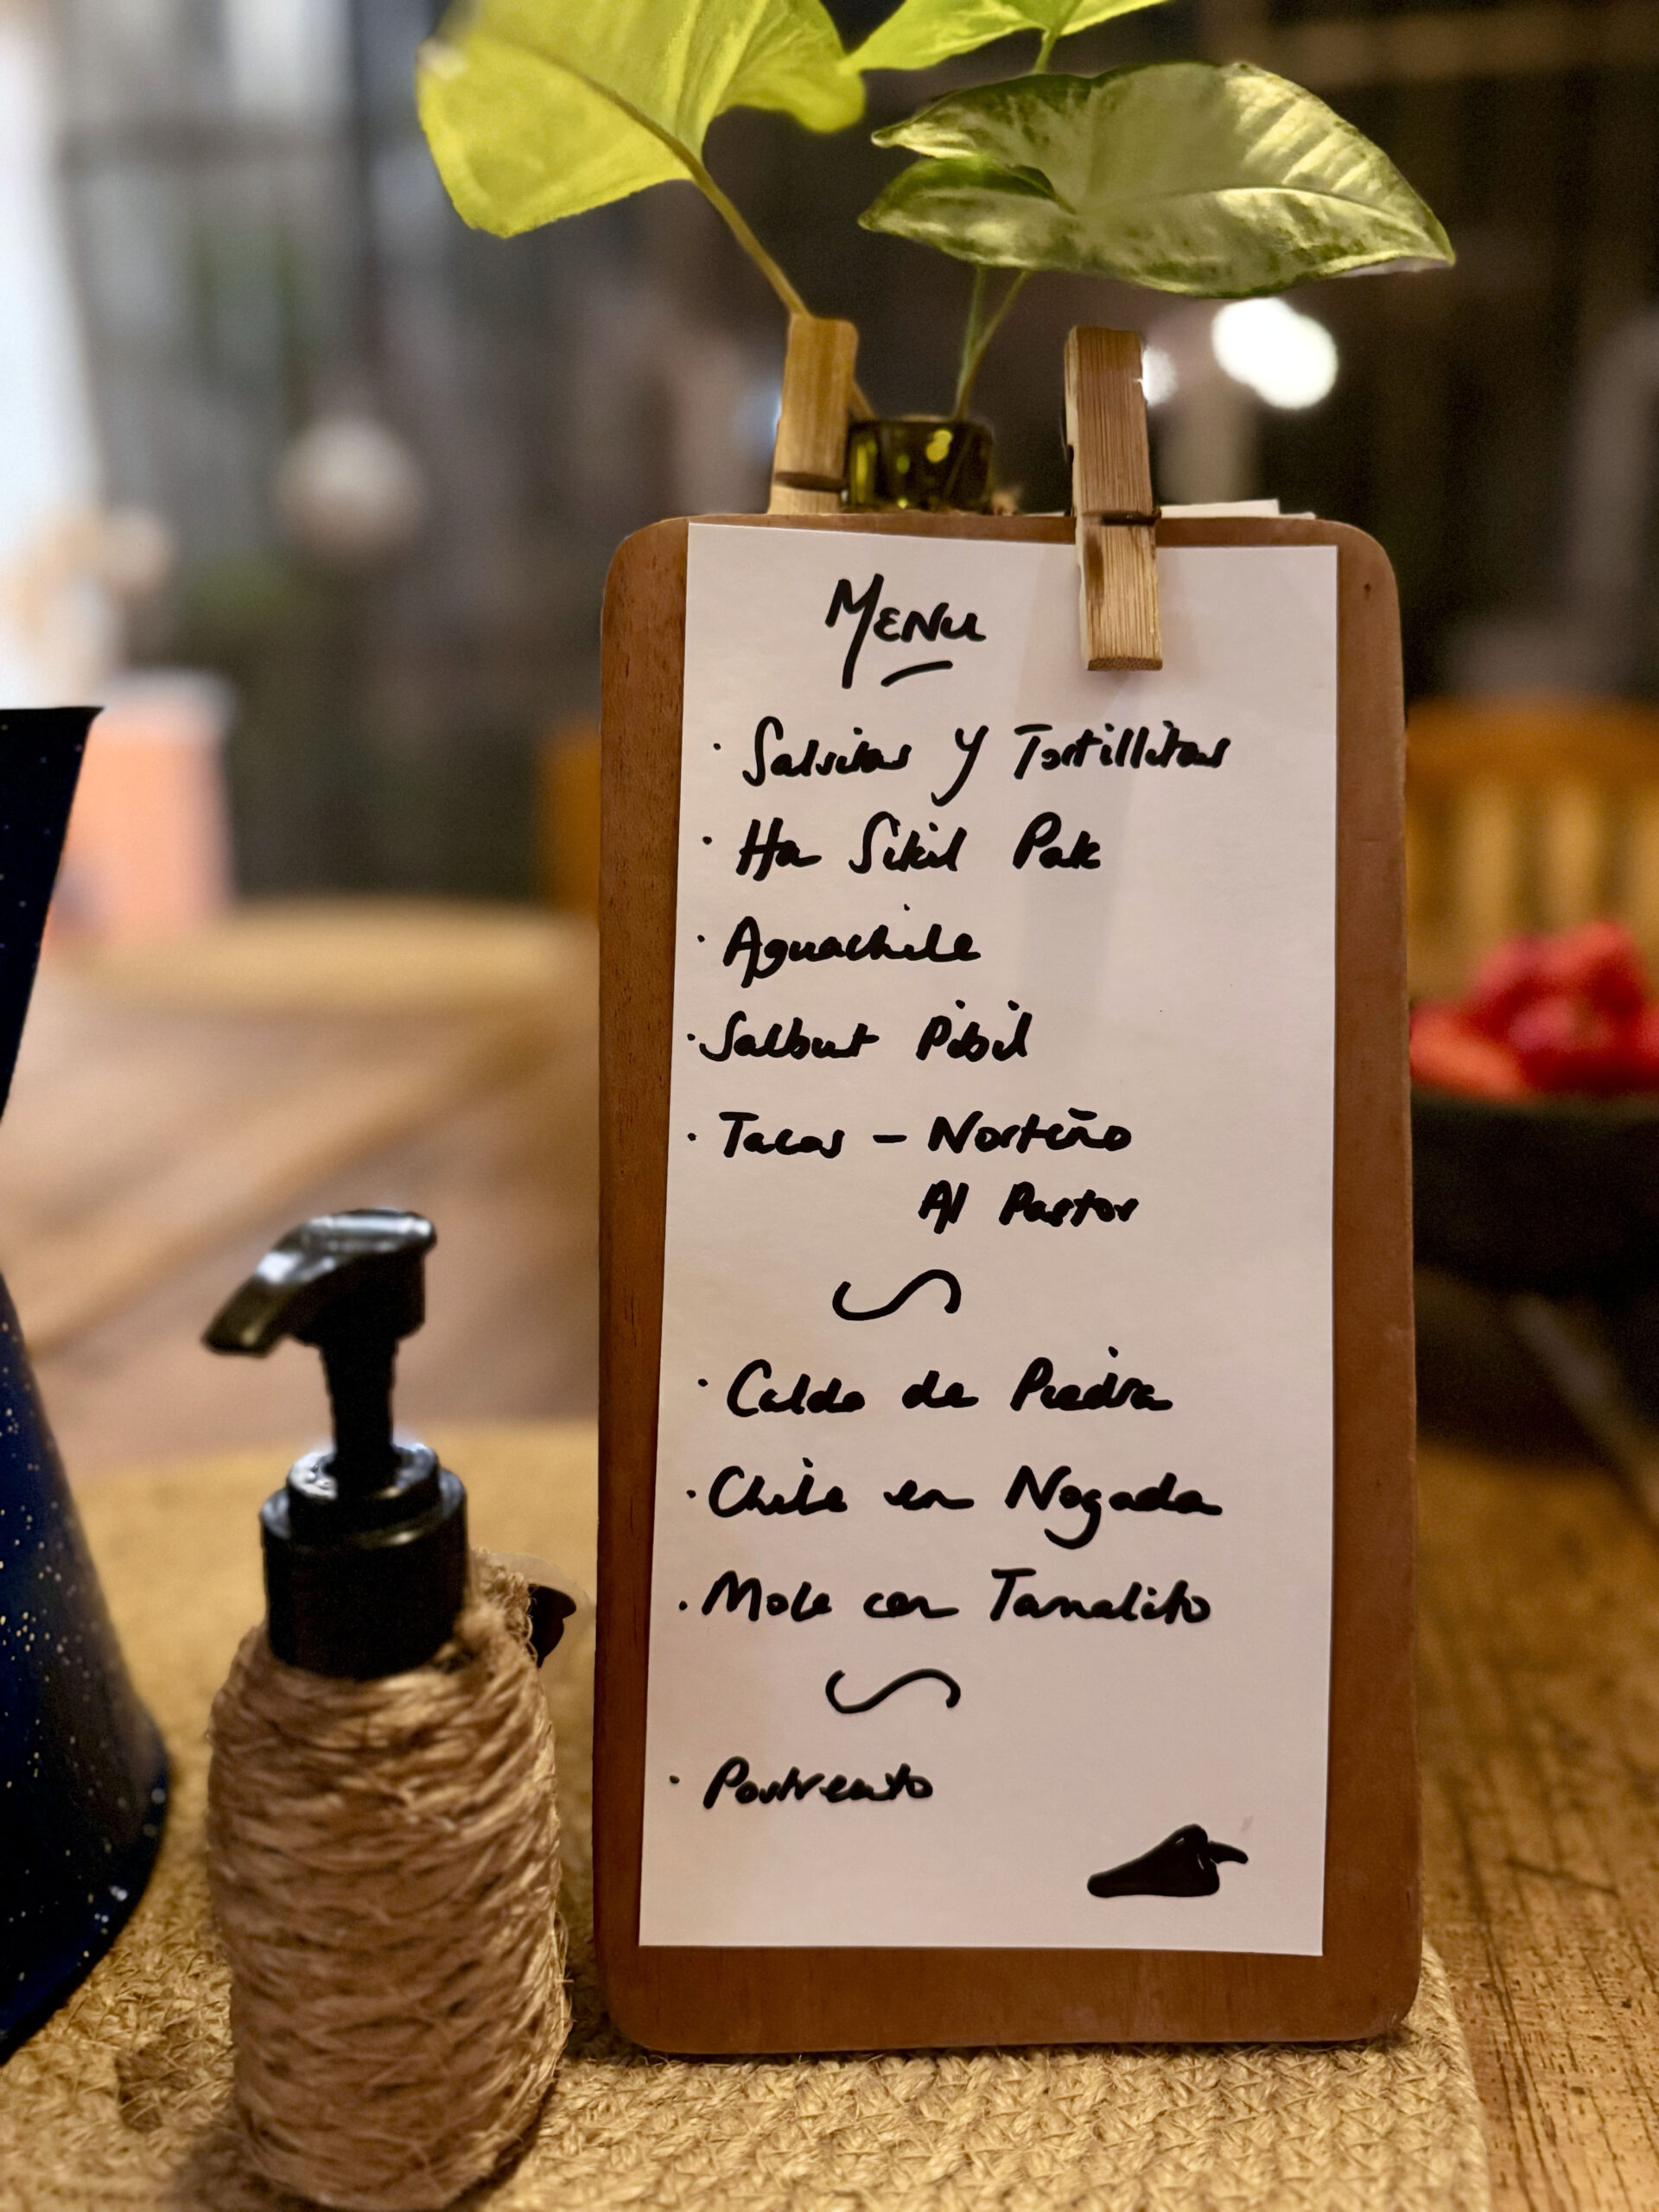 MENU
· Salsitas y Tortillitas
· Ha Sikil Pak
· Aguachile
· Salbut Pibil
· Tacos - Norteño
Al Pastor
· Caldo de Piedra
· Chile en Nogada
· Mole con Tamalito
· Postrecito